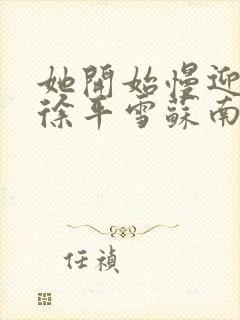 她開始慢迎
徐平雪蘇南
任禎